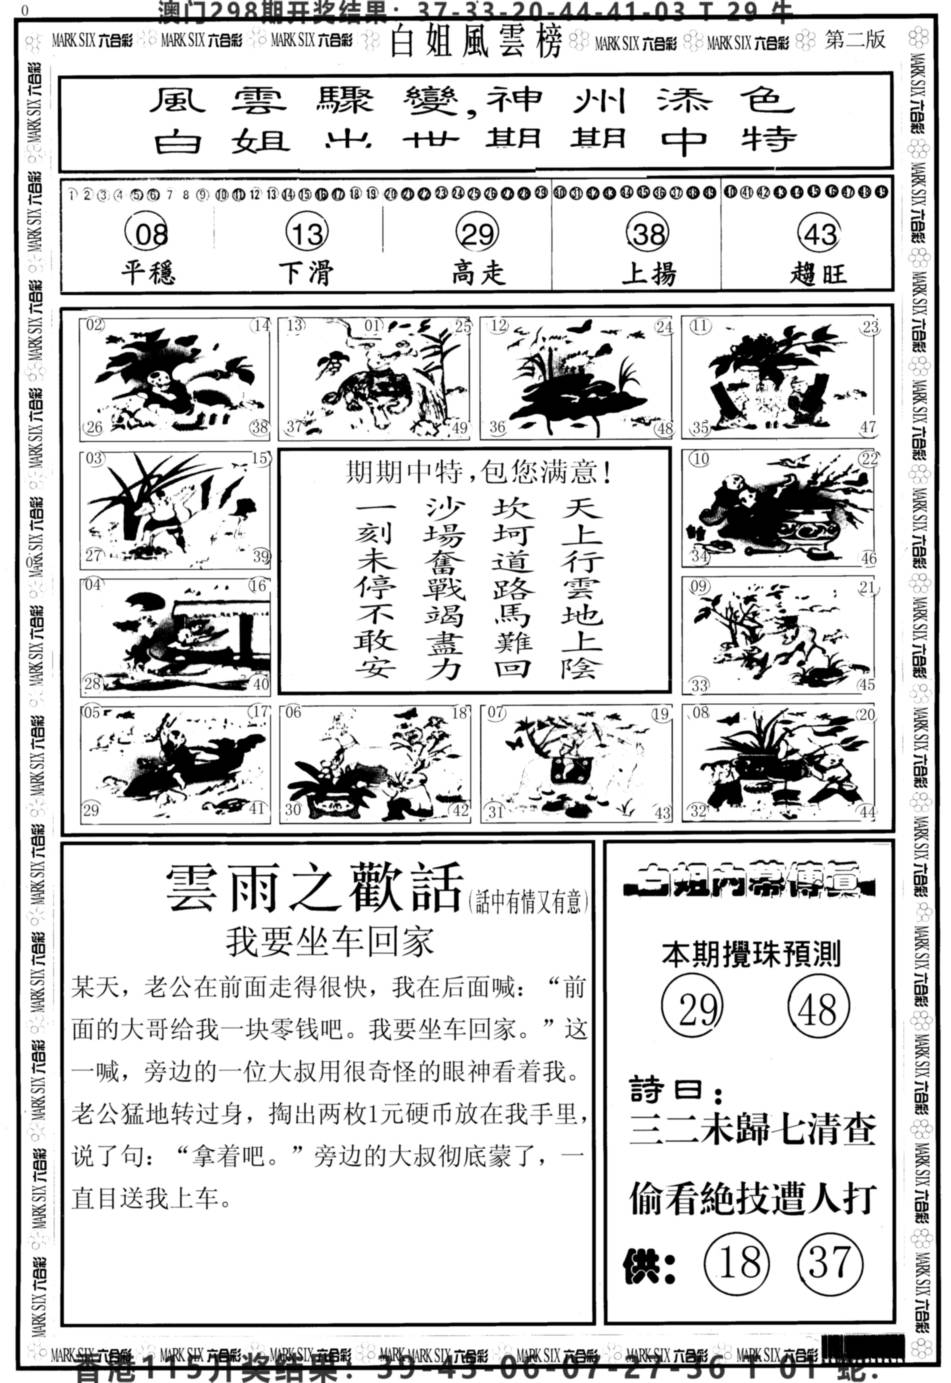 0
澳门298期开奖结果：37-33-20-44-41-03 T 29 牛
MARK SIX 六合彩 MARK SIX 六合彩 MARK SIX 六合彩 白姐風雲榜 MARK SIX 六合彩 MARK SIX 六合彩 第二版
風雲驟變,神州添色
白姐出世期期中特
1 2 3 4 5 6 7 8 9 10 11 12 13 14 15 16 17 18 19 20 21 22 23 24 25 26 27 28 29 30 31 32 33 34 35 36 37 38 39 40 41 42 43 44 45 46 47 48 49
08 13 29 38 43
平穩 下滑 高走 上揚 趨旺
02 14 13 01 25 12 24 11 23
26 38 37 49 36 48 35 47
03 15 10 22
27 39 34 46
04 16 09 21
28 40 33 45
05 17 06 18 07 19 08 20
29 41 30 42 31 43 32 44
期期中特,包您满意!
天上行雲地上陰
坎坷道路馬難回
沙場奮戰竭盡力
一刻未停不敢安
雲雨之歡話(話中有情又有意)
我要坐车回家
某天，老公在前面走得很快，我在后面喊：“前
面的大哥给我一块零钱吧。我要坐车回家。”这
一喊，旁边的一位大叔用很奇怪的眼神看着我。
老公猛地转过身，掏出两枚1元硬币放在我手里，
说了句：“拿着吧。”旁边的大叔彻底蒙了，一
直目送我上车。
白姐内幕傳真
本期攪珠預測
29 48
詩曰：
三二未歸七清查
偷看絶技遭人打
供： 18 37
MARK SIX 六合彩 MARK SIX 六合彩 MARK SIX 六合彩 MARK SIX 六合彩 MARK SIX 六合彩 MARK SIX 六合彩 MARK SIX 六合彩
香港115开奖结果：39-43-06-07-27-36 T 01 蛇.